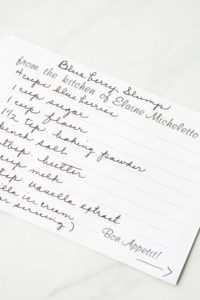 Blueberry Slump
from the kitchen of Elaine Micheletto
4 cups blueberries
1 cup sugar
1 cup flour
1 1/2 tsp baking powder
pinch salt
tbsp. butter
cup milk
tsp vanilla extract
vanilla ice cream
serving)
Bon Appetit!